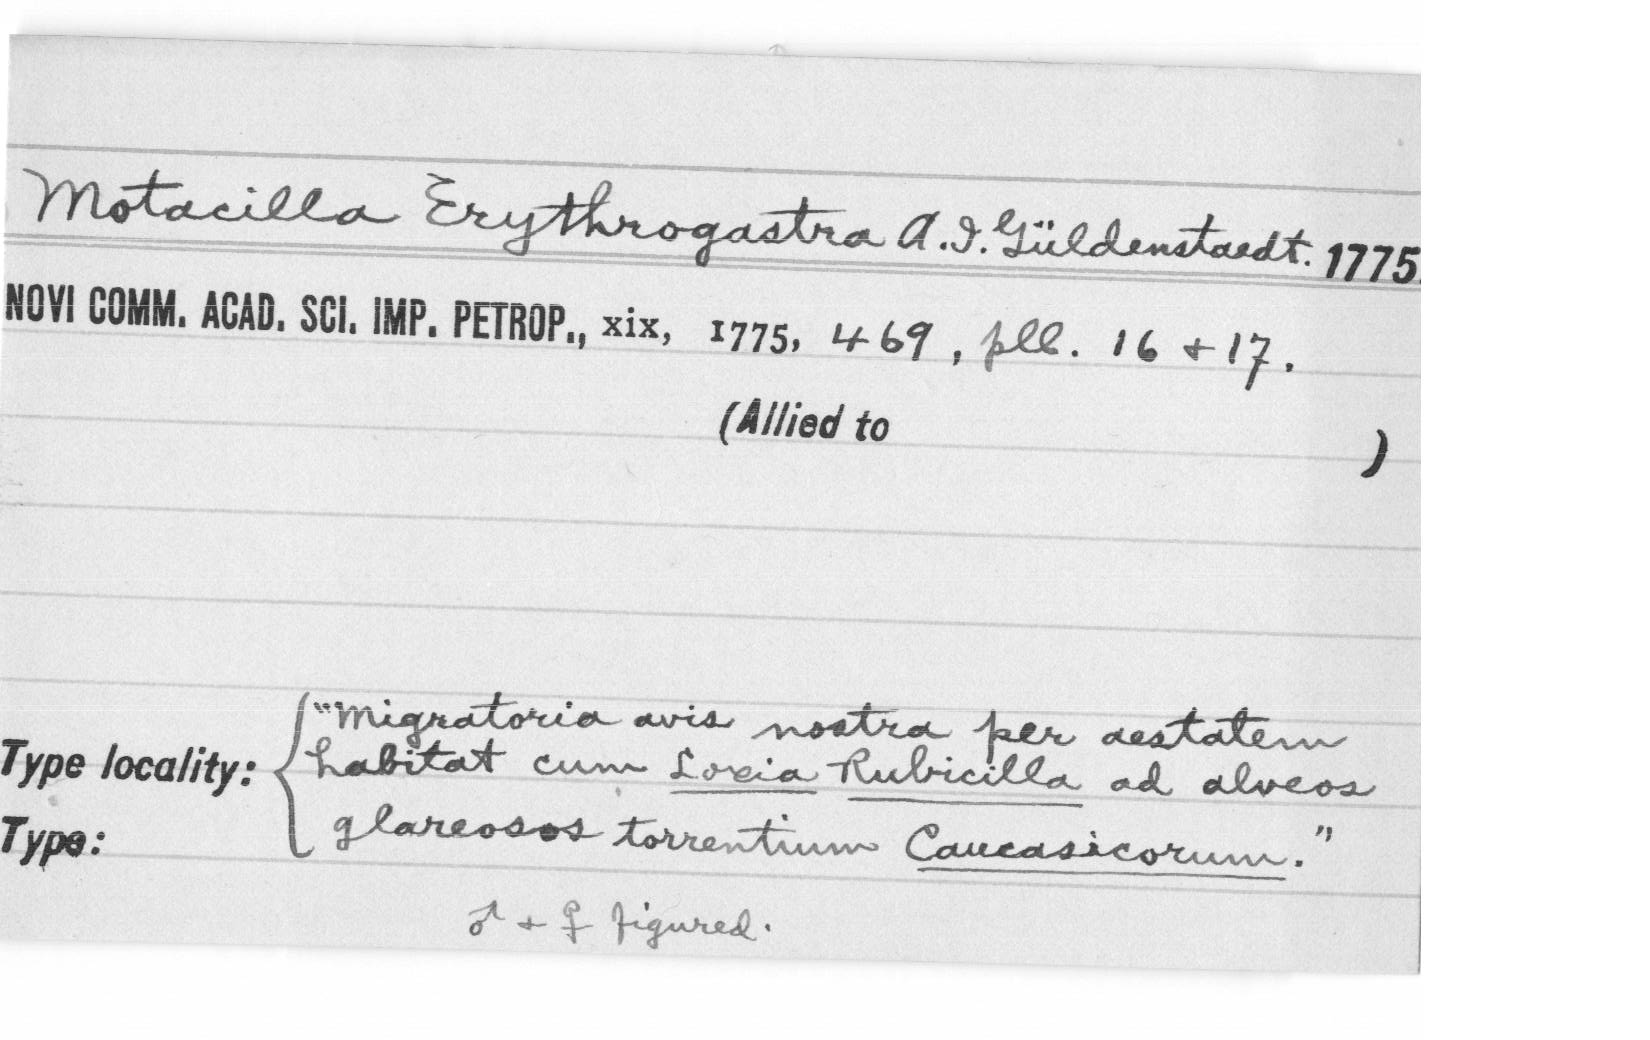 Motacilla Erythrogastra A.I. Güldenstaedt. 1775.
NOVI COMM. ACAD. SCI. IMP. PETROP., xix, 1775, 469, pll. 16 + 17.
(Allied to )
"Migratoria avis nostra per aestatem
Type locality: habitat cum Loxia Rubicilla ad alveos
Type: glareosos torrentium Caucasicorum."
♂ + ♀ figured.